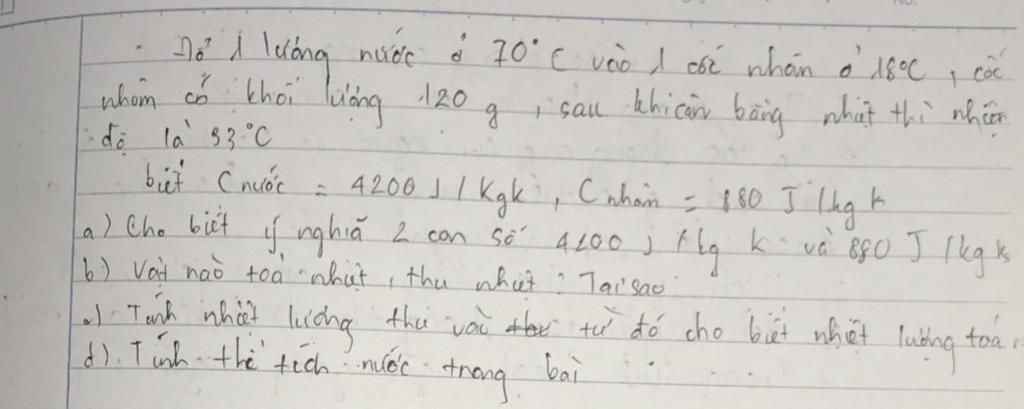 . Đổ 1 lượng nước ở 70°C vào 1 cốc nhôm ở 18°C, cốc
nhôm có khối lượng 120 g, sau khi cân bằng nhiệt thì nhiệt
độ là 33°C
biết C nước = 4200 J/Kgk, C nhôm = 880 J/kg k
a) Cho biết ý nghĩa 2 con số 4200 J/kg k và 880 J/kg k
b) Vật nào toả nhiệt, thu nhiệt? Tại sao
c) Tính nhiệt lượng thu vào từ đó cho biết nhiệt lượng toả
d). Tính thể tích nước trong bài